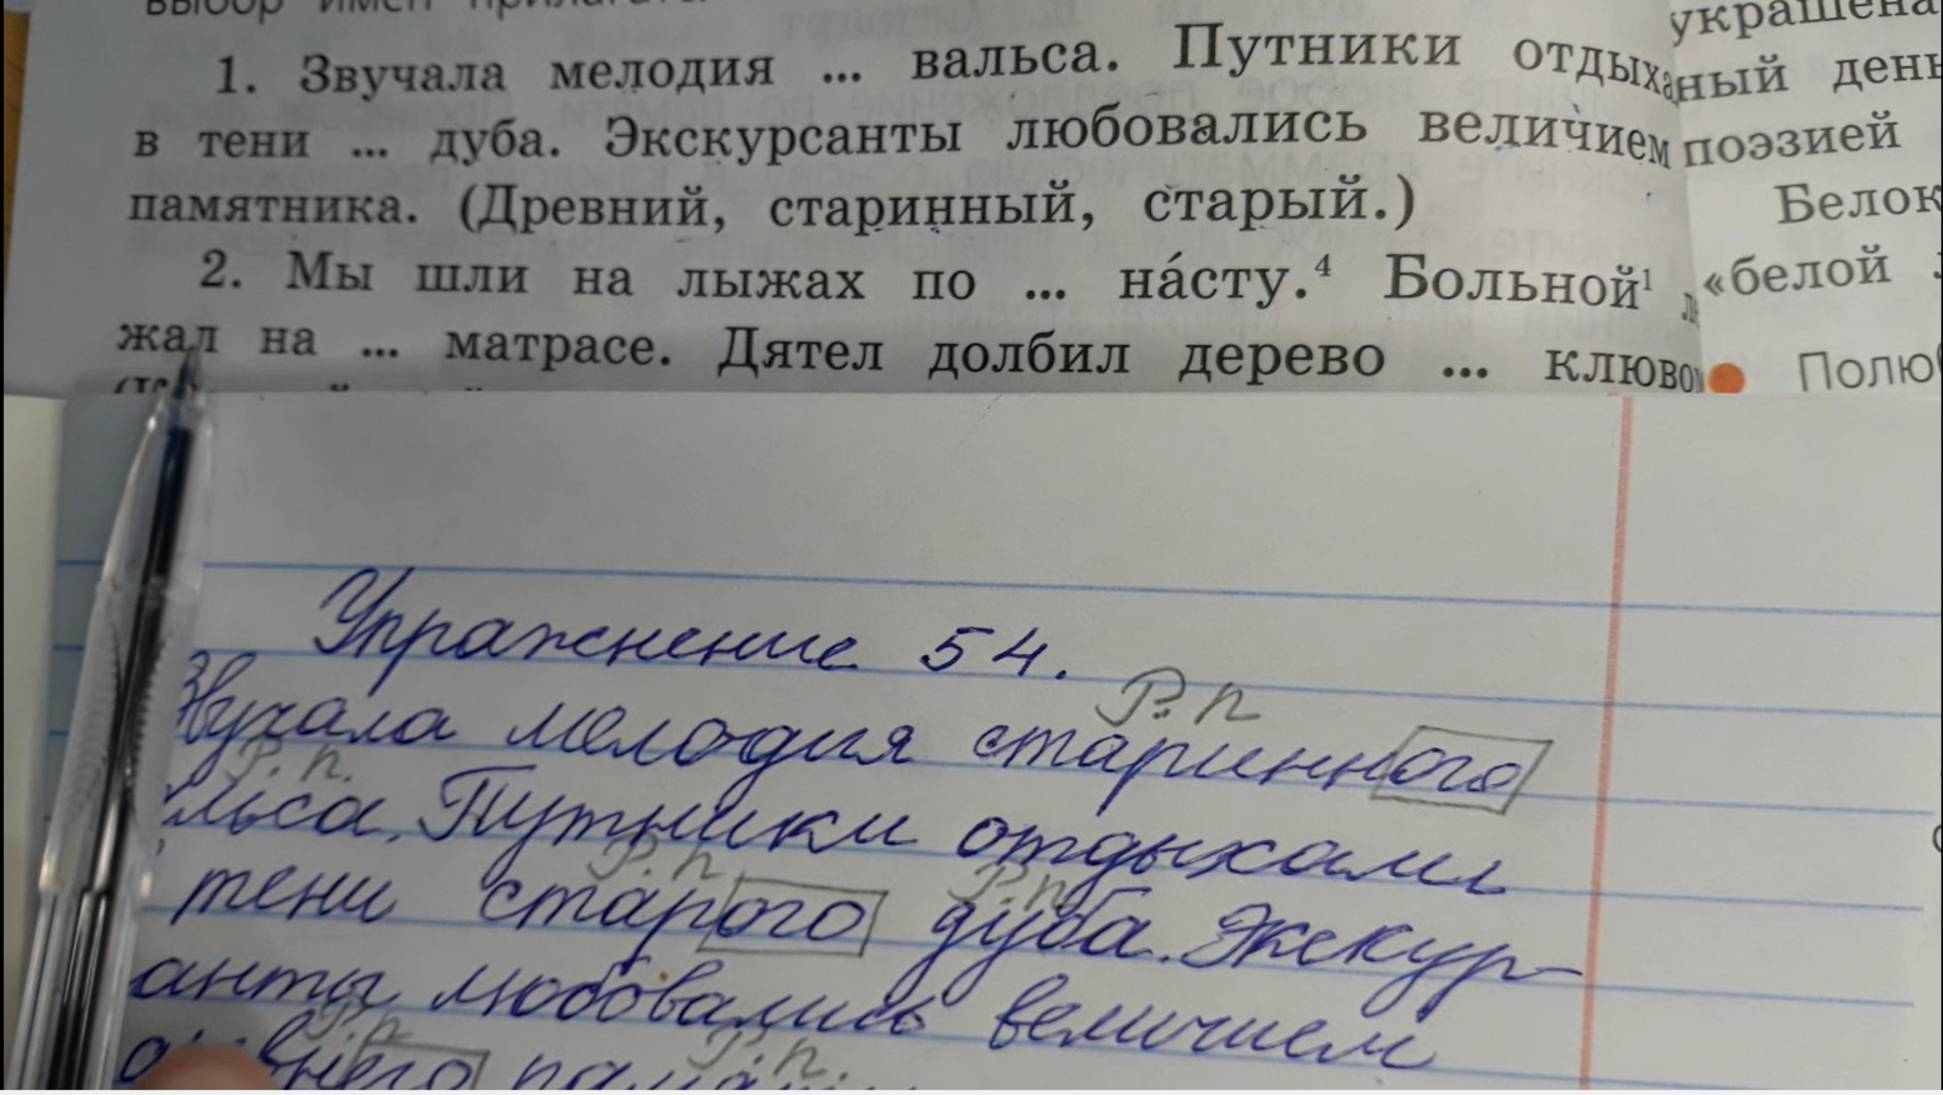 1. Звучала мелодия ... вальса. Путники отдыха
в тени ... дуба. Экскурсанты любовались величием
памятника. (Древний, старинный, старый.)
2. Мы шли на лыжах по ... на́сту.⁴ Больной¹
жал на ... матрасе. Дятел долбил дерево ... клюво
украшена
ный день
поэзией
Белок
«белой
Полю
Упражнение 54.
Р. п
Звучала мелодия старинного
Р. п.
льса. Путники отдыхали
Р. п Р. п
тени старого дуба. Экскур-
анты любовались величием
Р. п Р. п.